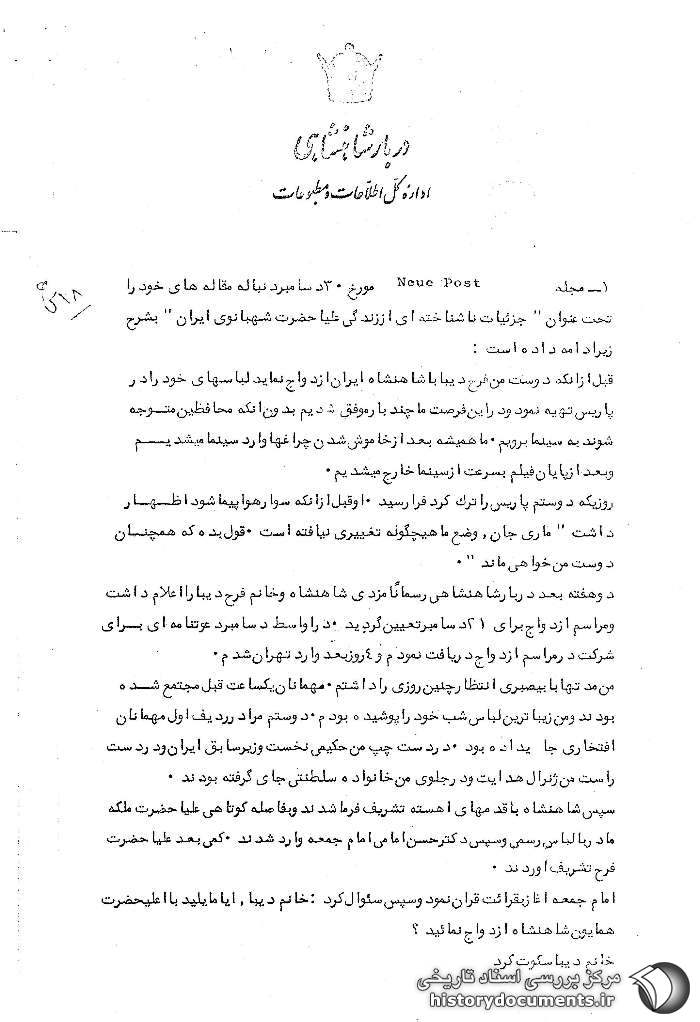 دربار شاهنشاهی
اداره کل اطلاعات و مطبوعات
۱ــ مجله Neue Post مورخ ۳۰ دسامبر دنباله مقاله های خود را
تحت عنوان " جزئیات ناشناخته ای از زندگی علیا حضرت شهبانوی ایران " بشرح
زیر ادامه داده است :
قبل از انکه دوست من فرح دیبا با شاهنشاه ایران ازدواج نماید لباسهای خود را در
پاریس تهیه نمود و در این فرصت ما چند بار موفق شدیم بدون انکه محافظین متوجه
شوند به سینما برویم ۰ ما همیشه بعد از خاموش شدن چراغها وارد سینما میشدیم
وبعد از پایان فیلم بسرعت از سینما خارج میشدیم ۰
روزیکه دوستم پاریس را ترک کرد فرا رسید ۰ اوقبل از انکه سوار هواپیما شود اظهار
داشت " ماری جان , وضع ما هیچگونه تغییری نیافته است ۰ قول بده که همچنان
دوست من خواهی ماند " ۰
دو هفته بعد دربار شاهنشاهی رسماً نامزدی شاهنشاه وخانم فرح دیبا را اعلام داشت
ومراسم ازدواج برای ۲۱ دسامبر تعیین گردید ۰ در اواسط دسامبر دعوتنامه ای برای
شرکت در مراسم ازدواج دریافت نمودم و ٤ روز بعد وارد تهران شدم ۰
من مدتها با بیصبری انتظار چنین روزی را داشتم ۰ مهمانان یکساعت قبل مجتمع شده
بودند ومن زیباترین لباس شب خود را پوشیده بودم ۰ دوستم مرا در ردیف اول مهمانان
افتخاری جا یداده بود ۰ در دست چپ من حکیمی نخست وزیر سابق ایران و در دست
راست من ژنرال هدایت و در جلوی من خانواده سلطنتی جای گرفته بودند ۰
سپس شاهنشاه با قدمهای اهسته تشریف فرما شدند وبفاصله کوتاهی علیا حضرت ملکه
مادر با لباس رسمی وسپس دکتر حسن امامی امام جمعه وارد شدند ۰ کمی بعد علیا حضرت
فرح تشریف اوردند ۰
امام جمعه اغاز بقرائت قران نمود وسپس سئوال کرد : خانم دیبا , ایا مایلید با اعلیحضرت
همایون شاهنشاه ازدواج نمائید ؟
خانم دیبا سکوت کرد
مرکز بررسی اسناد تاریخی
historydocuments.ir